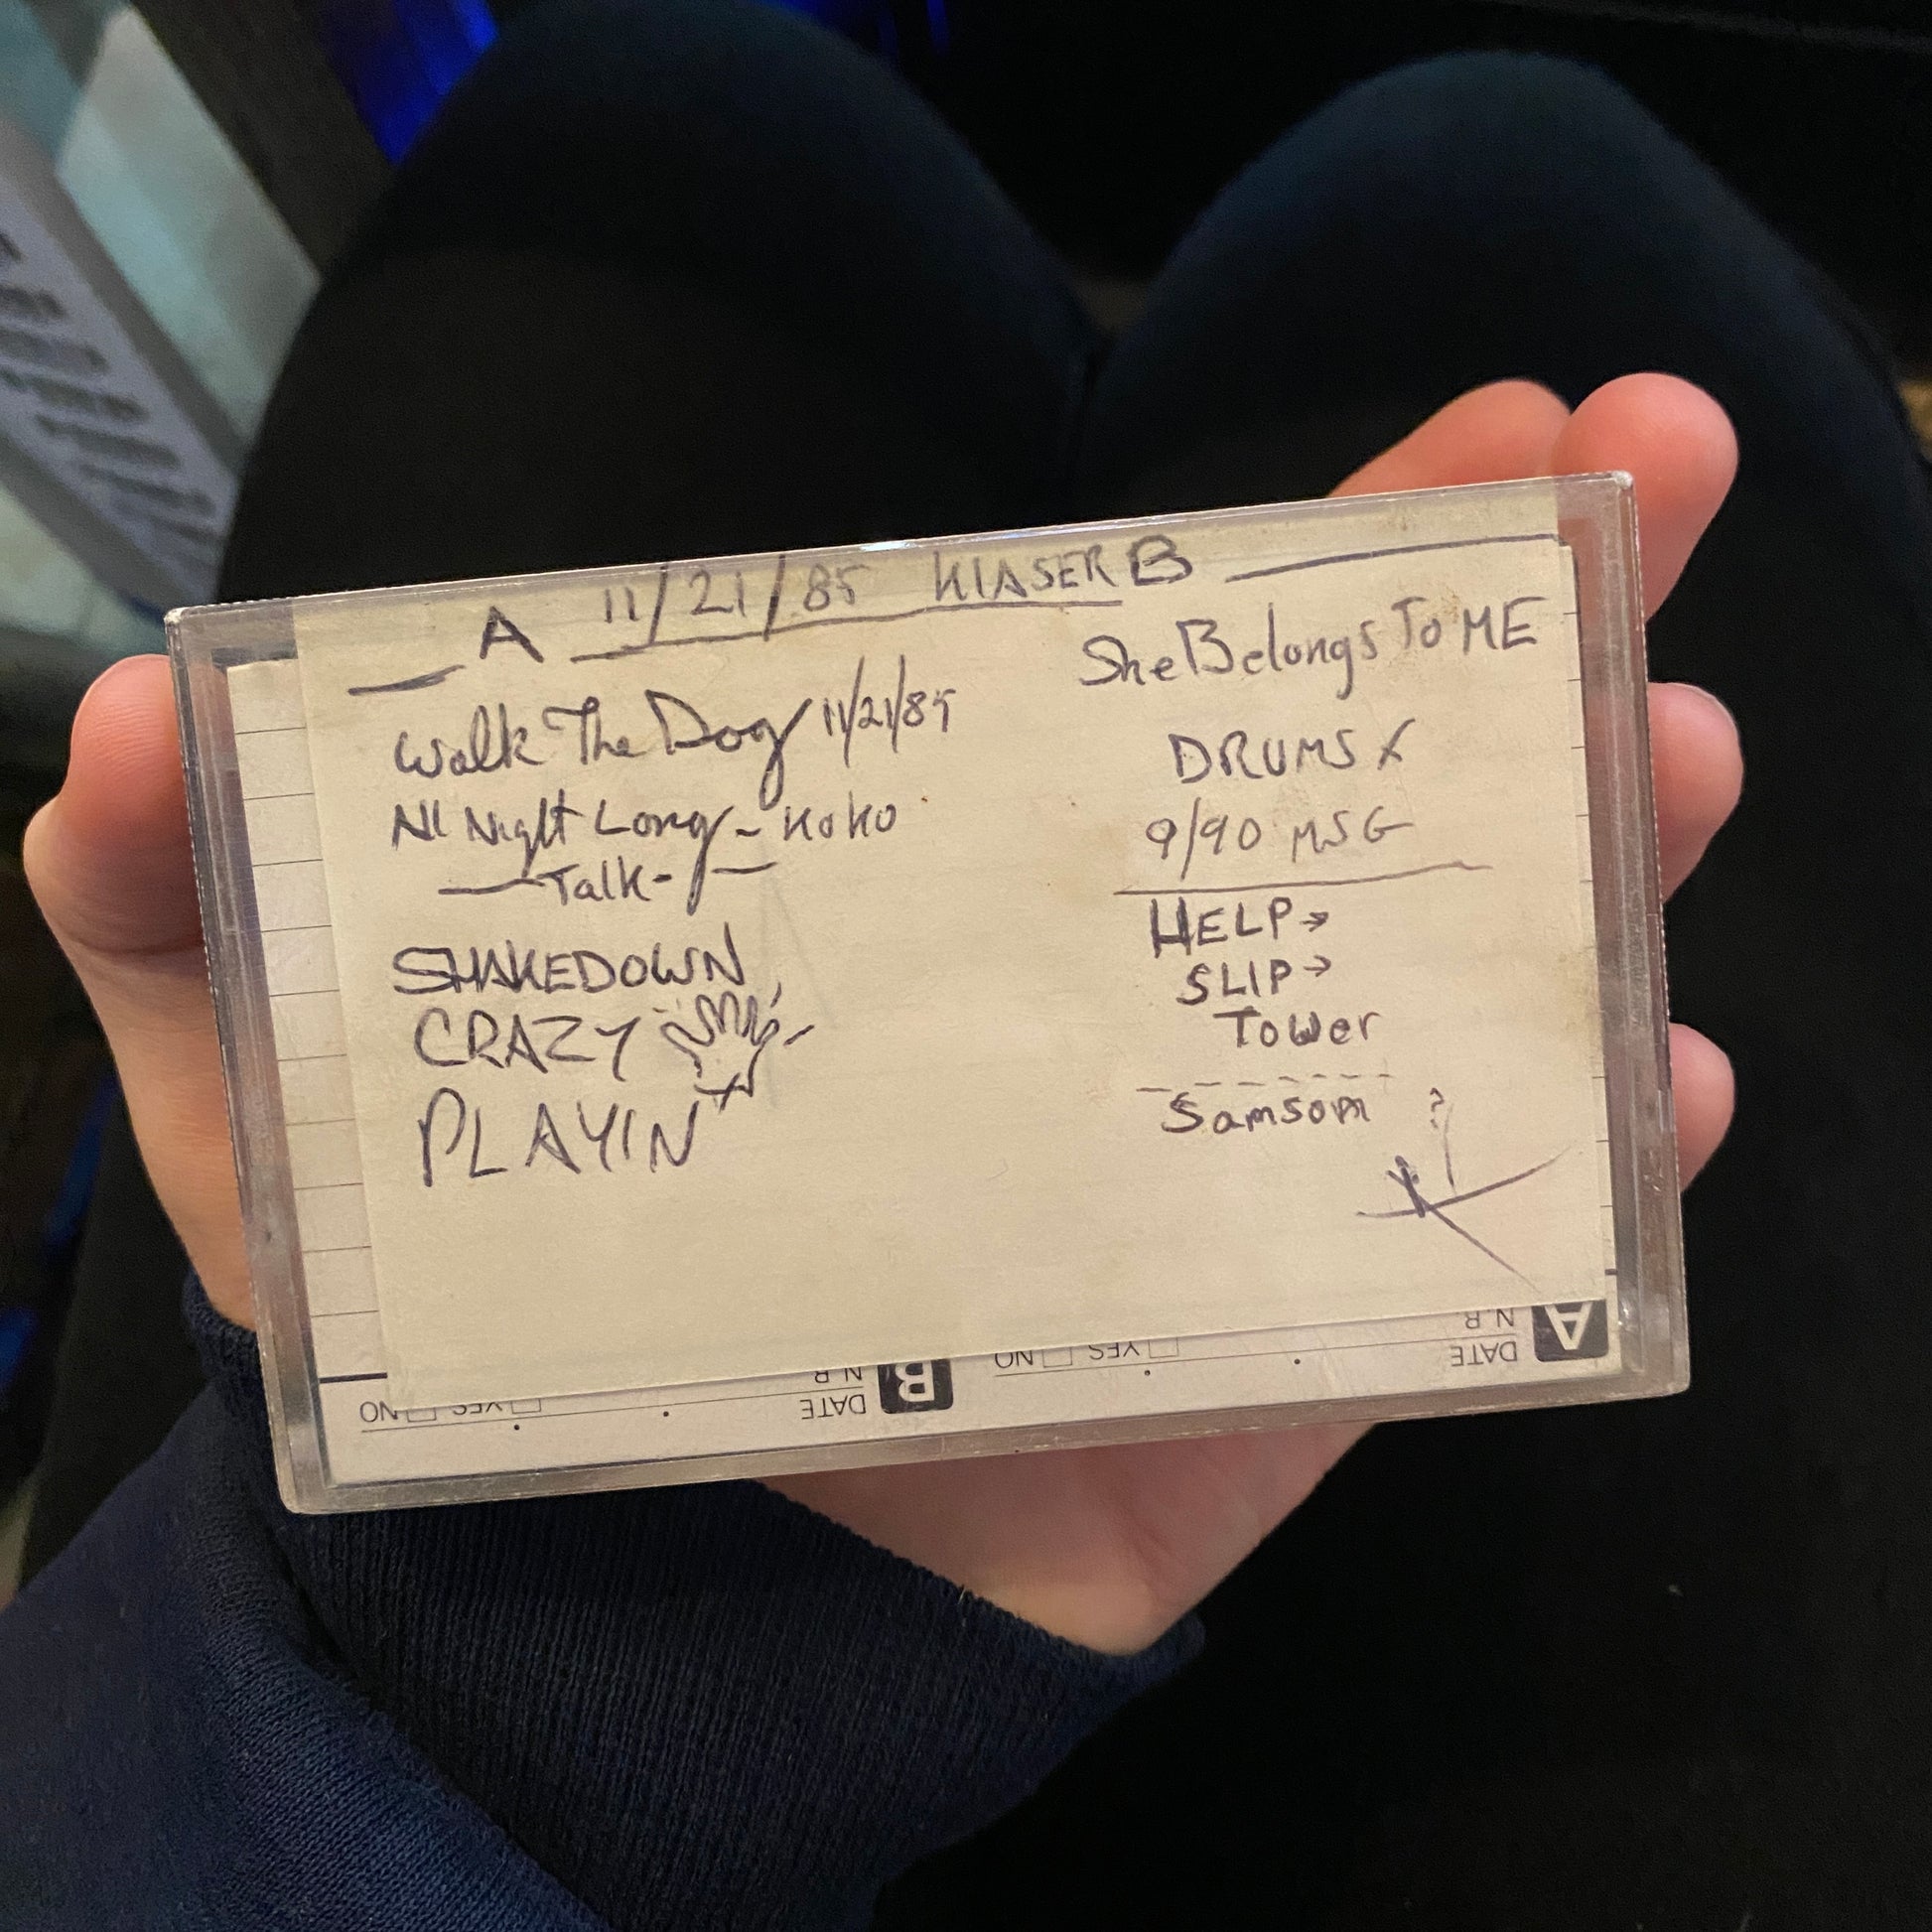 11/21/85 KIASER
A
Walk The Dog 11/21/85
All Night Long - KoKo
Talk -
SHAKEDOWN
CRAZY
PLAYIN
B
She Belongs To ME
DRUMS X
9/90 MSG
HELP →
SLIP →
Tower
Samson ?
A
N.R
DATE
YES NO
B
N.R
DATE
YES NO